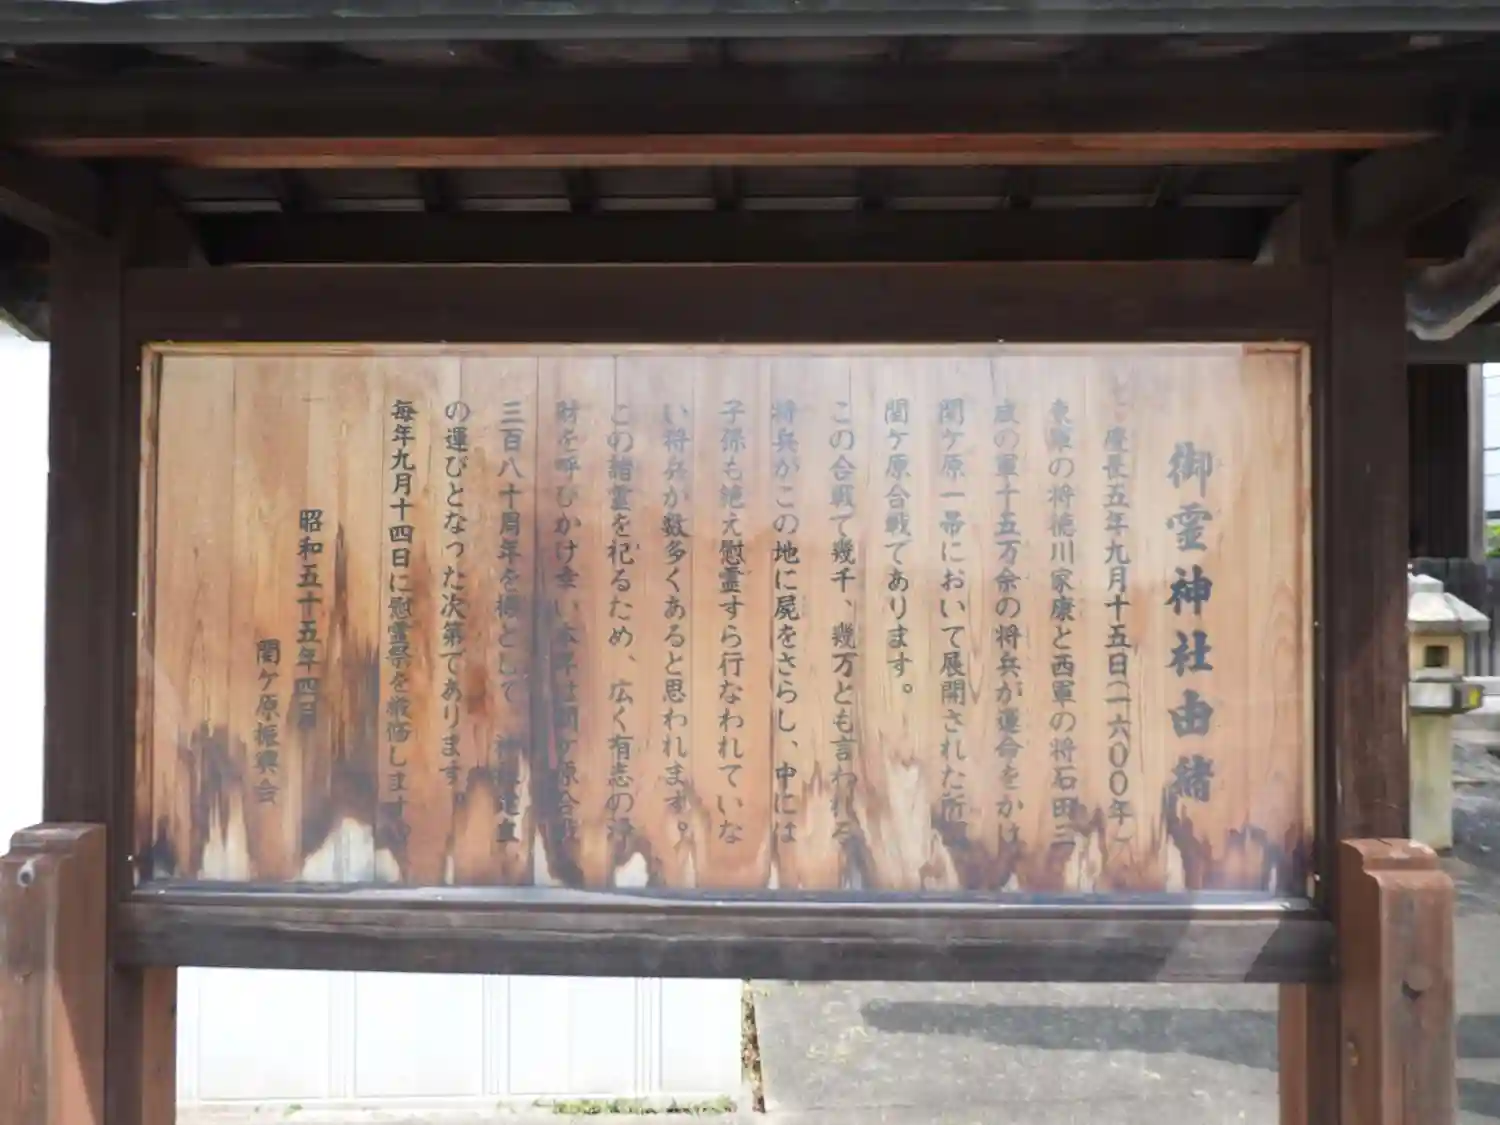 御霊神社由緒
慶長五年九月十五日(一六〇〇年)
東軍の将徳川家康と西軍の将石田三
成の軍十五万余の将兵が運命をかけ
関ケ原一帯において展開された所
関ケ原合戦であります。
この合戦で幾千、幾万とも言われる
将兵がこの地に屍をさらし、中には
子孫も絶え慰霊すら行なわれていな
い将兵が数多くあると思われます。
この諸霊を祀るため、広く有志の浄
財を呼びかけ幸い本年は関ケ原合戦
三百八十周年を機として
の運びとなった次第であります。
毎年九月十四日に慰霊祭を厳修します。
昭和五十五年四月
関ケ原振興会